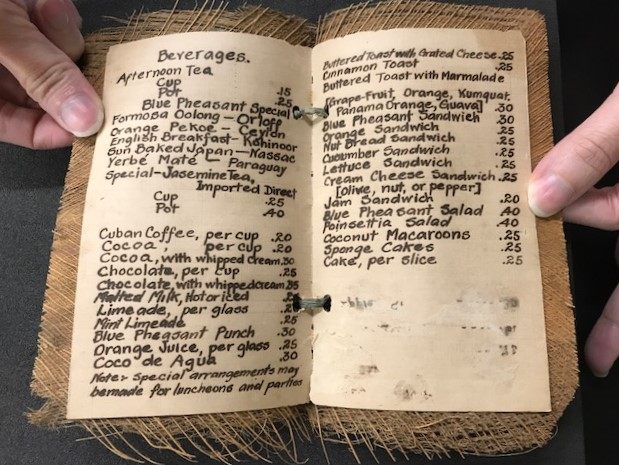 Beverages.
Afternoon Tea
Cup .15
Pot .25
Blue Pheasant Special
Formosa Oolong — Orloff
Orange Pekoe — Ceylon
English Breakfast — Kohinoor
Sun Baked Japan — Nassac
Yerbe Maté — Paraguay
Special — Jasemine Tea,
Imported Direct
Cup .25
Pot .40
Cuban Coffee, per cup .20
Cocoa, per cup .20
Cocoa, with whipped cream .30
Chocolate, per cup .25
Chocolate, with whipped cream .35
Malted Milk, Hot or iced
Limeade, per glass
Mint Limeade .25
Blue Pheasant Punch .30
Orange Juice, per glass .25
Coco de Agua .30
Note:- Special arrangements may
be made for luncheons and parties
Buttered Toast with Grated Cheese .25
Cinnamon Toast .25
Buttered Toast with Marmalade
[Grape-Fruit, Orange, Kumquat,
Panama Orange, Guava] .30
Blue Pheasant Sandwich .30
Orange Sandwich .25
Nut Bread Sandwich .25
Cucumber Sandwich .25
Lettuce Sandwich .25
Cream Cheese Sandwich .25
[Olive, nut, or pepper]
Jam Sandwich .20
Blue Pheasant Salad .40
Poinsettia Salad .40
Coconut Macaroons .25
Sponge Cakes .25
Cake, per slice .25